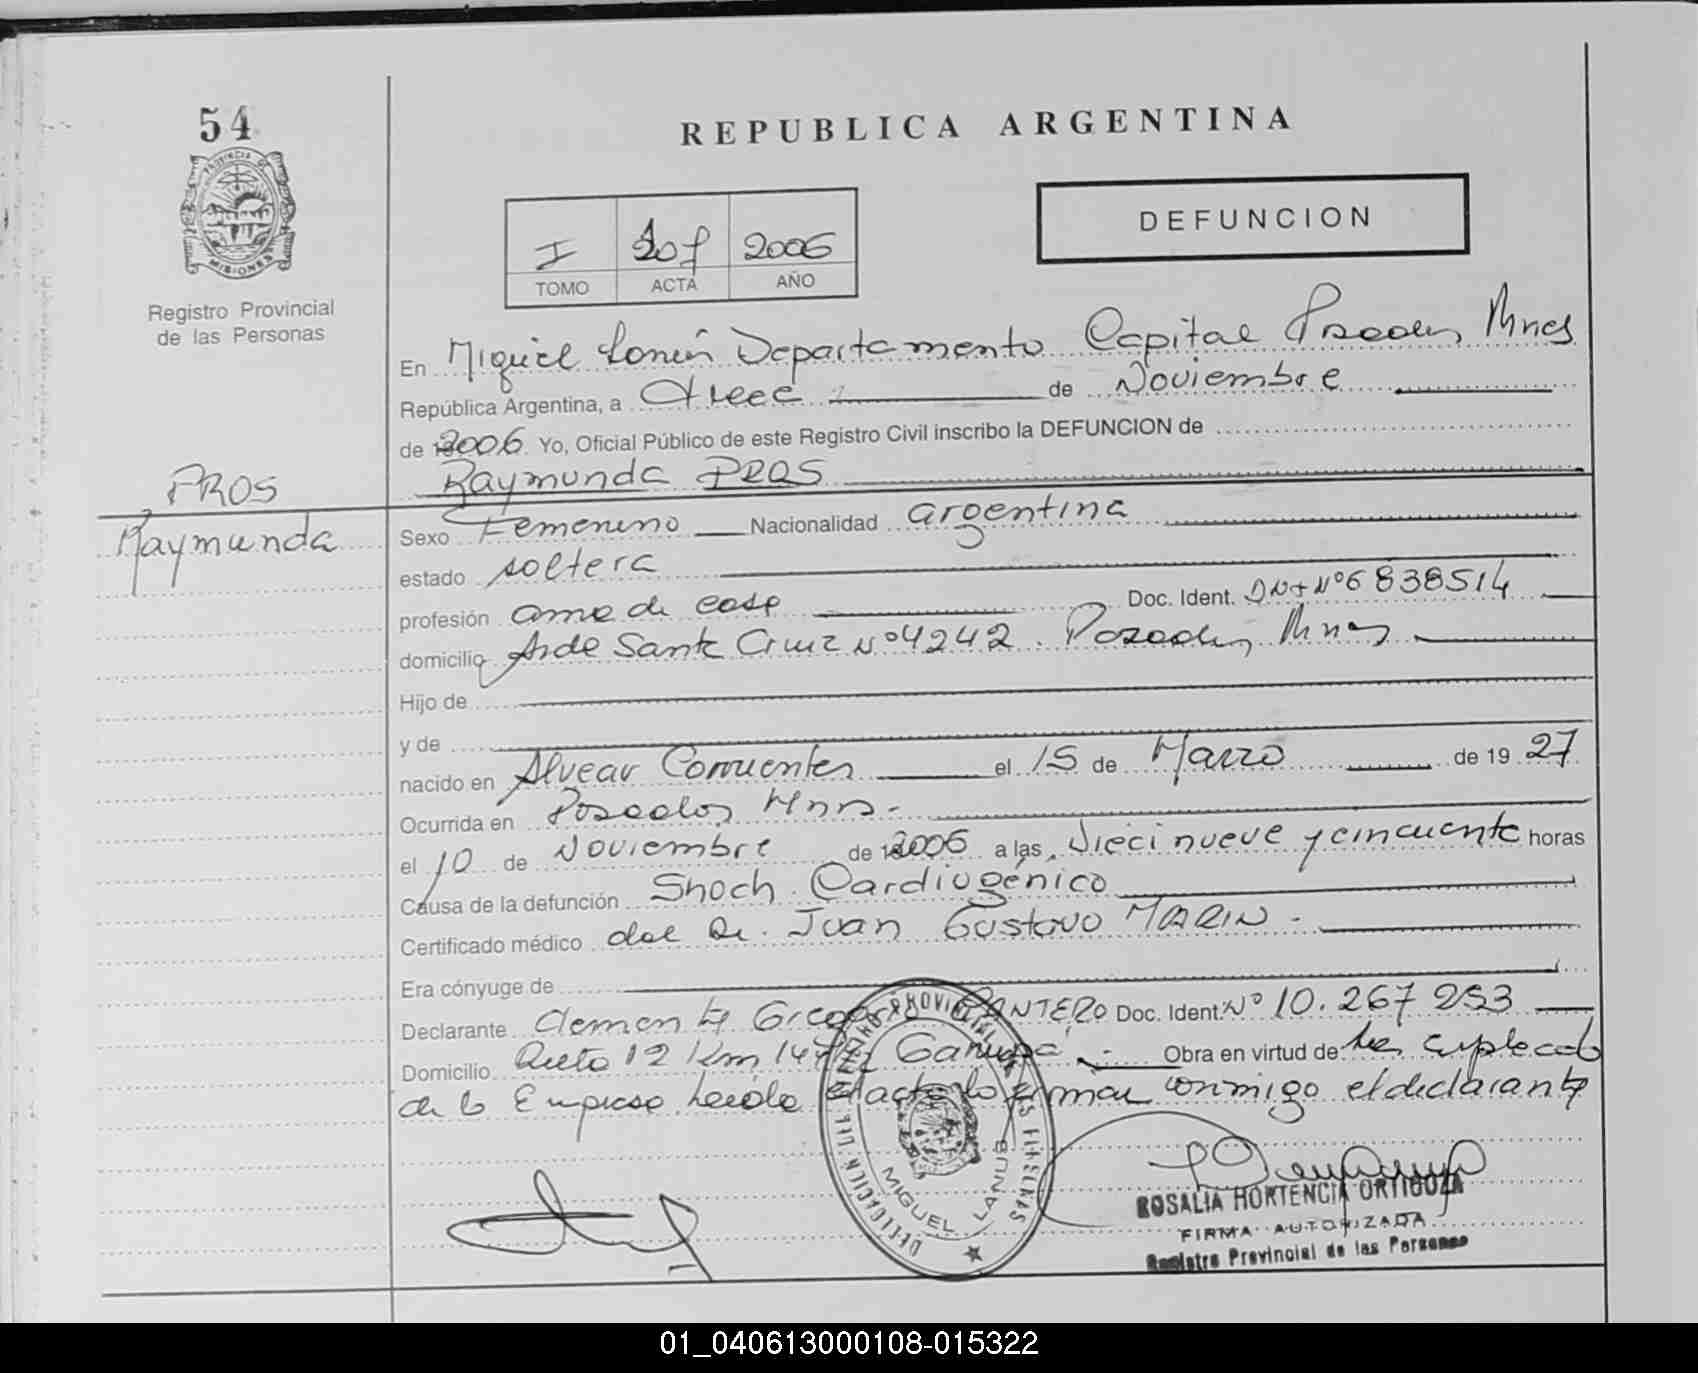 54
PROVINCIA DE MISIONES
Registro Provincial
de las Personas
REPUBLICA ARGENTINA
DEFUNCION
I 2006
TOMO ACTA AÑO
En Miguel Lanús Departamento Capital Posadas Mnes
República Argentina, a trece de Noviembre
de 2006 Yo, Oficial Público de este Registro Civil inscribo la DEFUNCION de
Raymunda PROS
PROS
Raymunda
Sexo Femenino Nacionalidad argentina
estado soltera
profesión ama de casa Doc. Ident. DNI Nº 6838514
domicilio Avda Santa Cruz Nº 4242. Posadas, Mnes
Hijo de
y de
nacido en Alvear Corrientes el 15 de Marzo de 1927
Ocurrida en Posadas Mnes.-
el 10 de Noviembre de 2006 a las Diecinueve y cincuenta horas
Causa de la defunción Shock Cardiogénico
Certificado médico del Dr. Juan Gustavo MARIN.-
Era cónyuge de
Declarante Clemente Gregorio Doc. Ident. Nº 10.267 253
Domicilio Ruta 12 Km Garupá.- Obra en virtud de ser empleado
de la Empresa Leída el acta la firma conmigo el declarante
DELEGACION DEL REGISTRO PROVINCIAL DE LAS PERSONAS
MIGUEL LANUS
ROSALIA HORTENCIA ORTIGOZA
FIRMA AUTORIZADA
Registro Provincial de las Personas
01_040613000108-015322